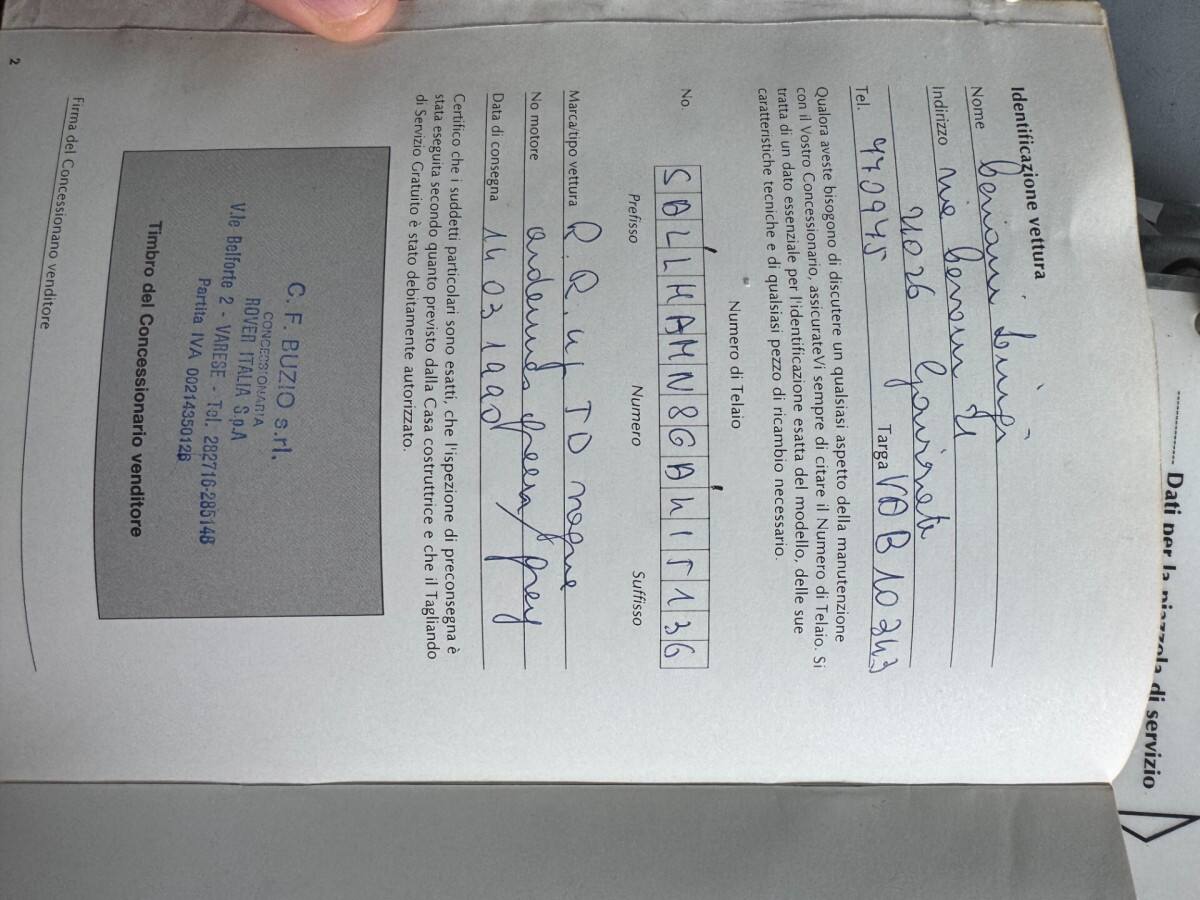 Dati per la piazzola di servizio
Identificazione vettura
Nome Ceriani Luigi
Indirizzo
21026 Gavirate
Tel. 770975 Targa VAB10243
Qualora aveste bisogno di discutere un qualsiasi aspetto della manutenzione
con il Vostro Concessionario, assicurateVi sempre di citare il Numero di Telaio. Si
tratta di un dato essenziale per l'identificazione esatta del modello, delle sue
caratteristiche tecniche e di qualsiasi pezzo di ricambio necessario.
Numero di Telaio
No. SALLHAMN8GA415136
Prefisso Numero Suffisso
Marca/tipo vettura R.R. TD
No motore green/grey
Data di consegna 14 03 1990
Certifico che i suddetti particolari sono esatti, che l'ispezione di preconsegna è
stata eseguita secondo quanto previsto dalla Casa costruttrice e che il Tagliando
di Servizio Gratuito è stato debitamente autorizzato.
C. F. BUZIO s.rl.
CONCESSIONARIA
ROVER ITALIA S.p.A
V.le Belforte 2 - VARESE - Tel. 282716-285148
Partita IVA 00214350126
Timbro del Concessionario venditore
Firma del Concessionano venditore
2